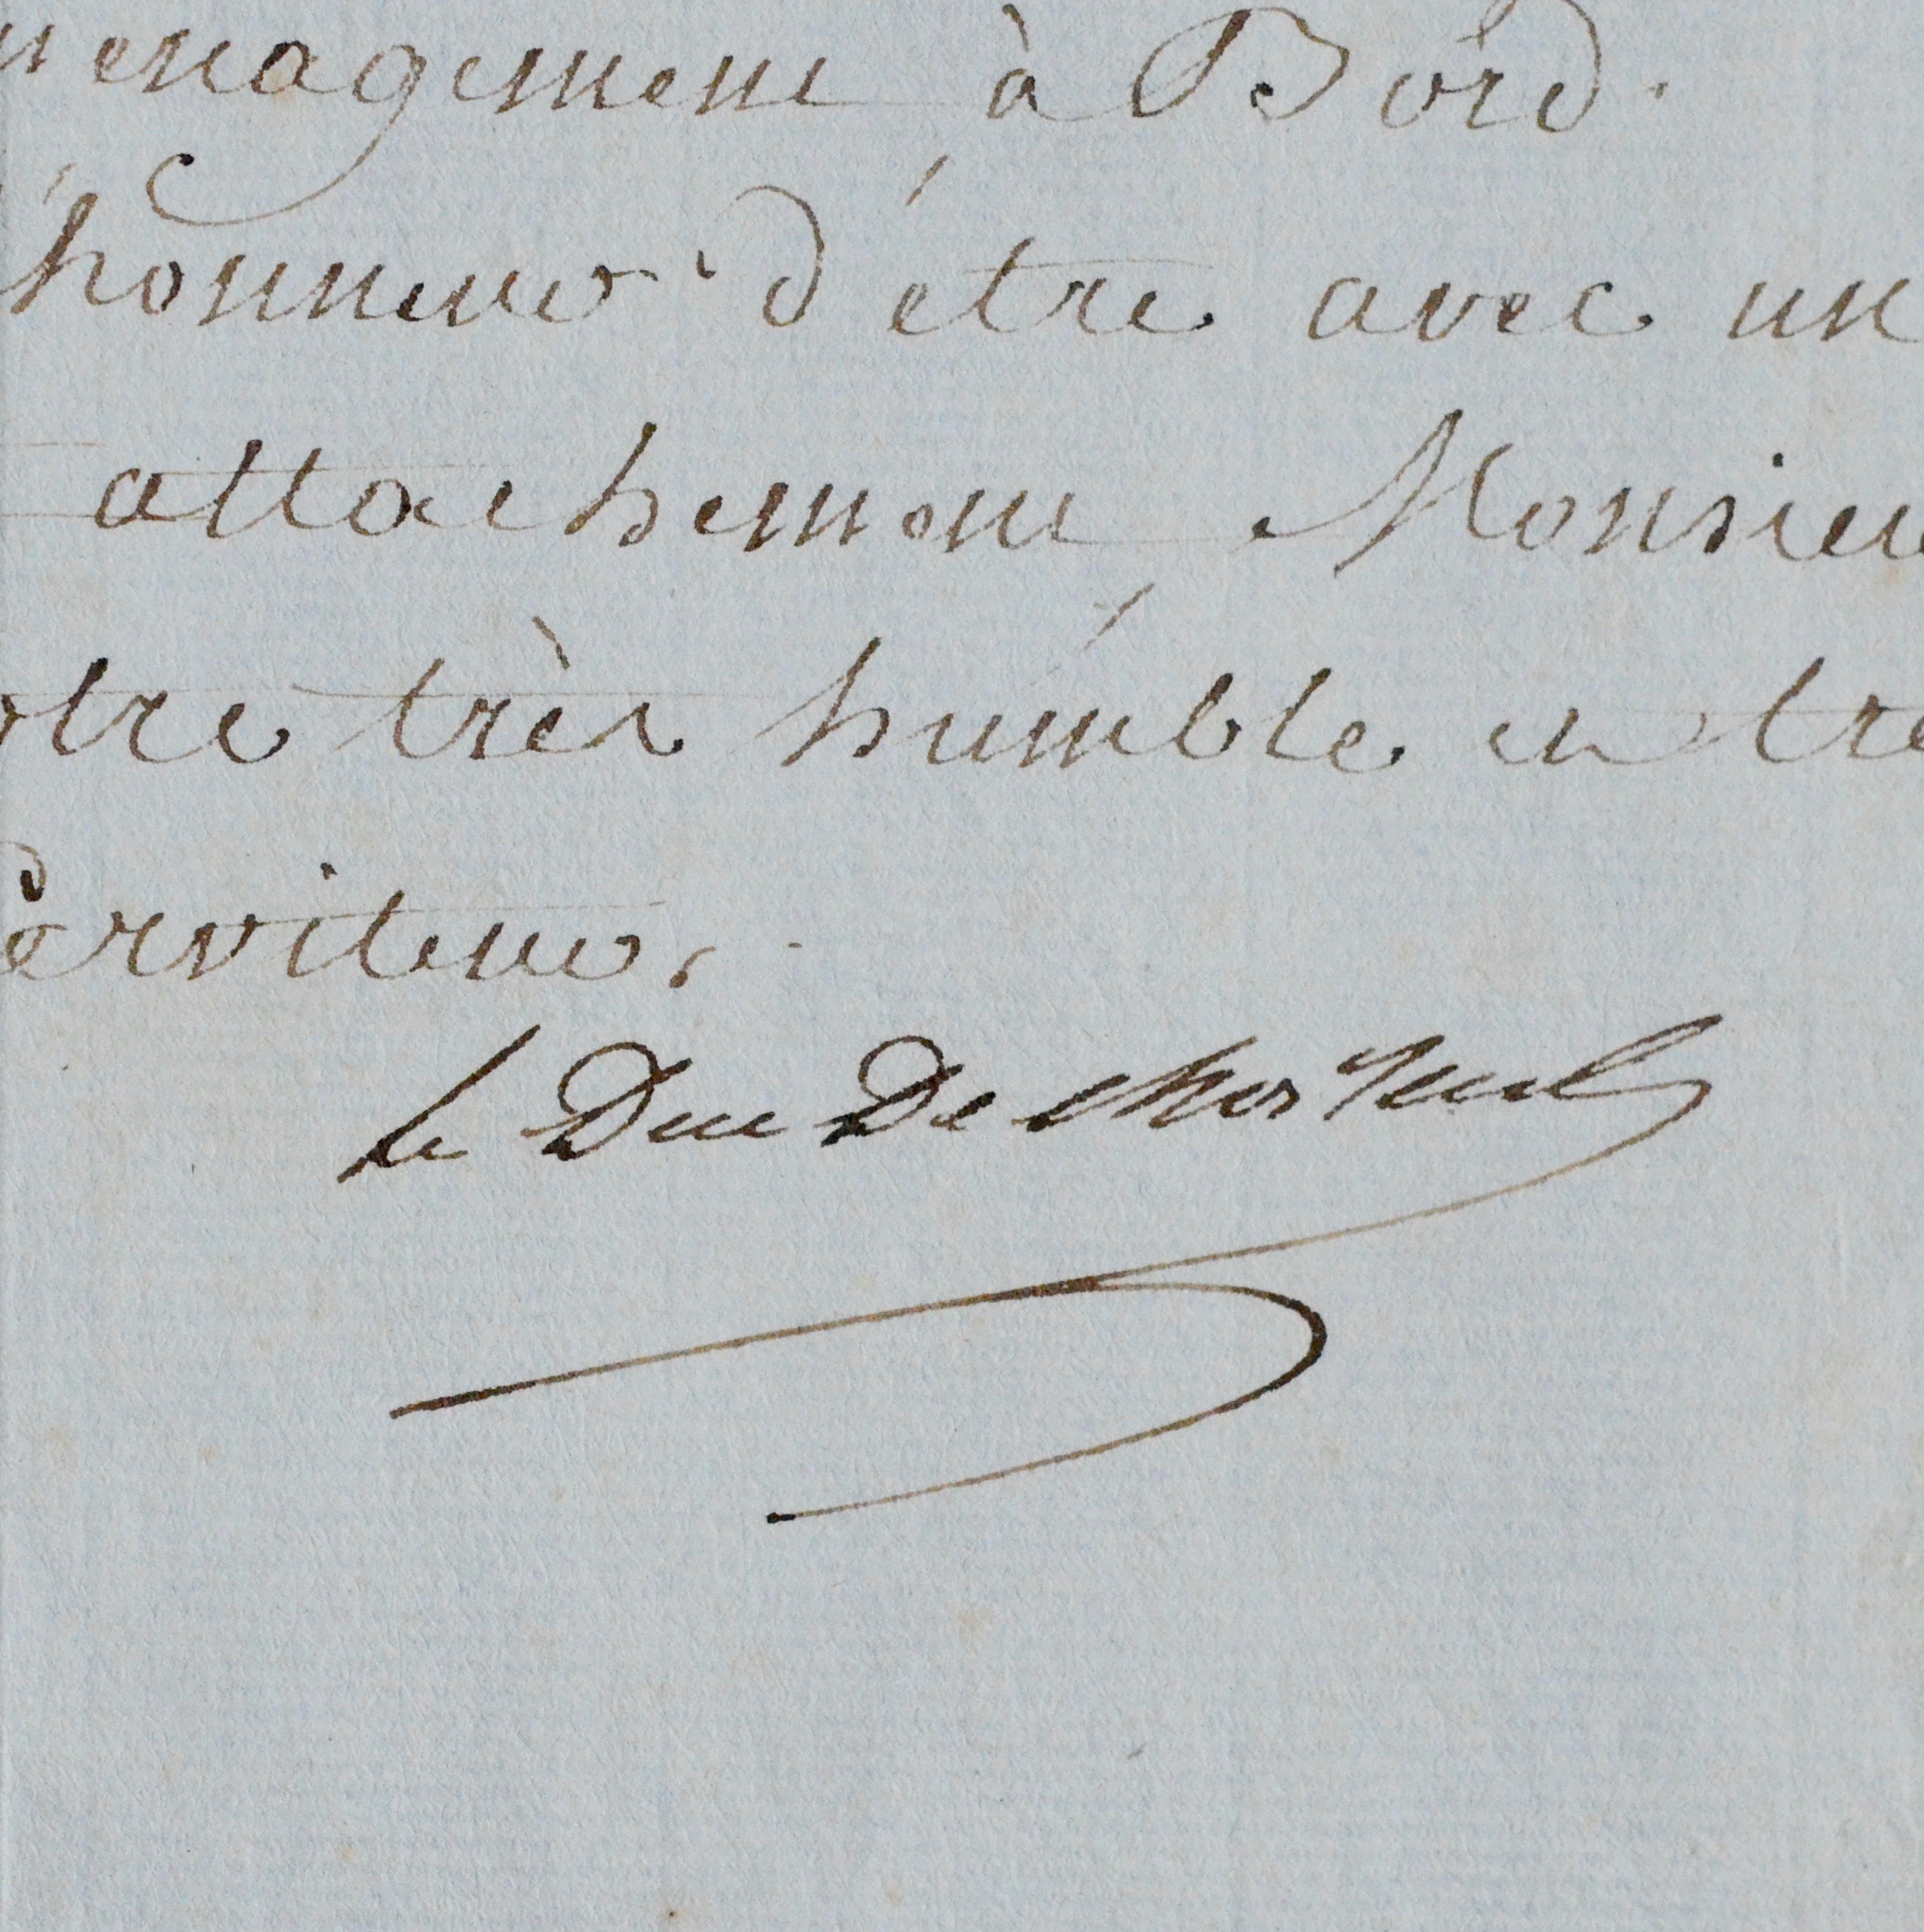 menagement à Bord.
l'honneur d'étre avec un
attachement, Monsieu
otre très humble et tre
serviteur,
le Duc De choiseul